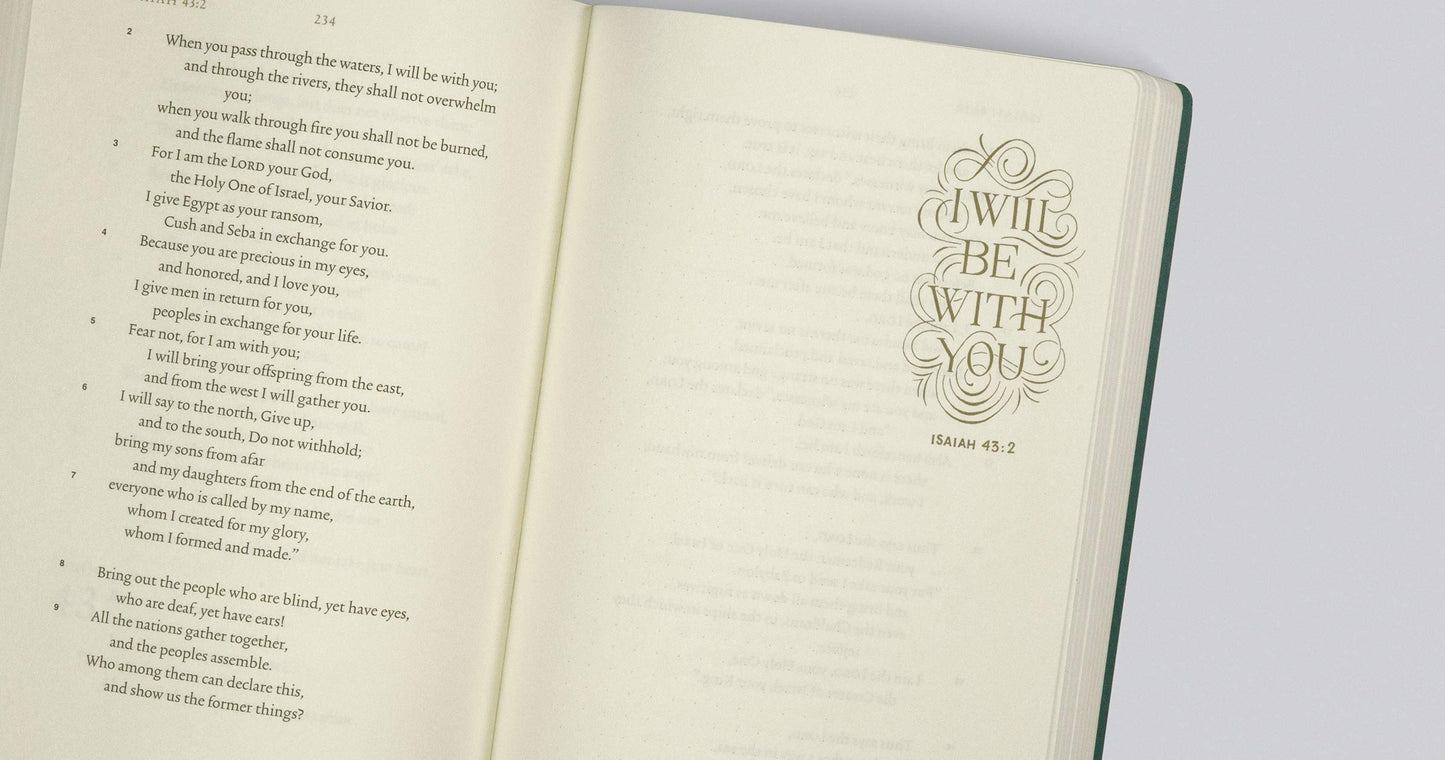 43:2
234
2 When you pass through the waters, I will be with you;
and through the rivers, they shall not overwhelm
you;
when you walk through fire you shall not be burned,
and the flame shall not consume you.
3 For I am the LORD your God,
the Holy One of Israel, your Savior.
I give Egypt as your ransom,
Cush and Seba in exchange for you.
4 Because you are precious in my eyes,
and honored, and I love you,
I give men in return for you,
peoples in exchange for your life.
5 Fear not, for I am with you;
I will bring your offspring from the east,
and from the west I will gather you.
6 I will say to the north, Give up,
and to the south, Do not withhold;
bring my sons from afar
and my daughters from the end of the earth,
7 everyone who is called by my name,
whom I created for my glory,
whom I formed and made.”
8 Bring out the people who are blind, yet have eyes,
who are deaf, yet have ears!
9 All the nations gather together,
and the peoples assemble.
Who among them can declare this,
and show us the former things?
I WILL
BE
WITH
YOU
ISAIAH 43:2